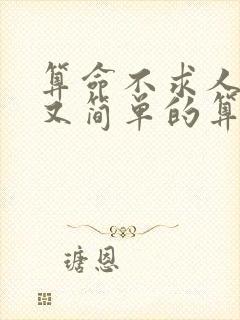 算命不求人
又简单的算
瑭恩